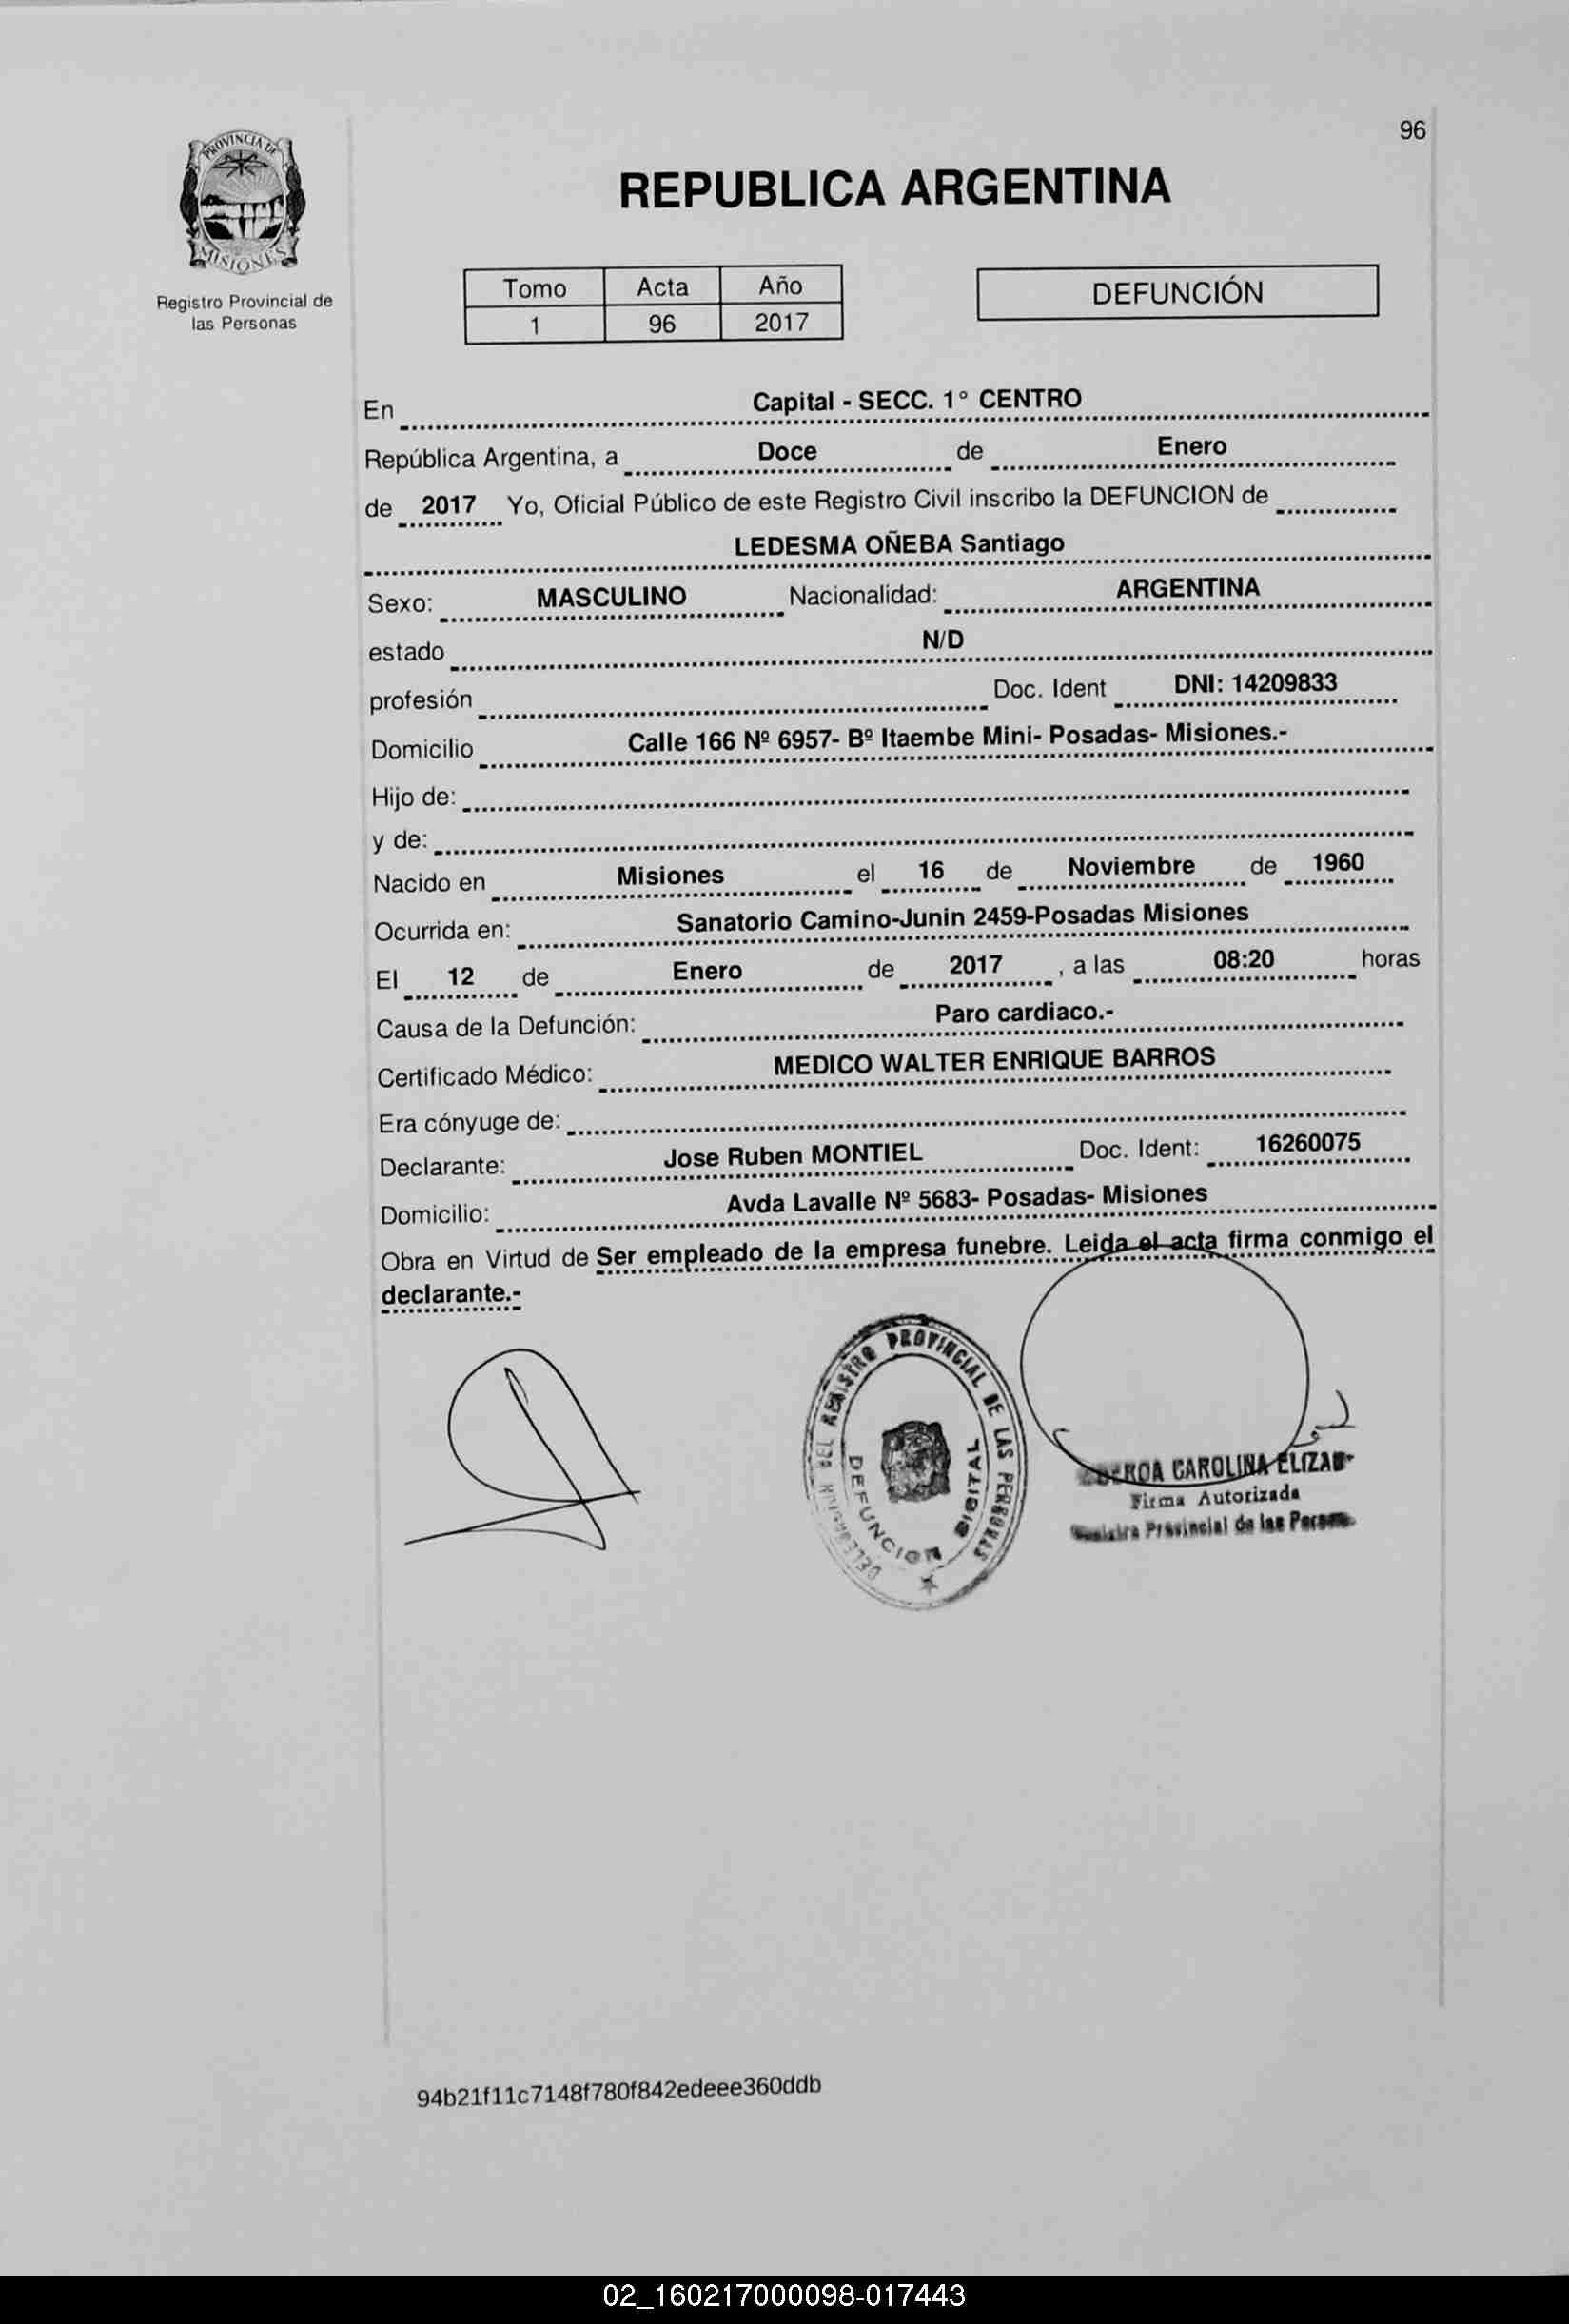 96
PROVINCIA DE
MISIONES
Registro Provincial de
las Personas
REPUBLICA ARGENTINA
Tomo Acta Año
1 96 2017
DEFUNCIÓN
En Capital - SECC. 1° CENTRO
República Argentina, a Doce de Enero
de 2017 Yo, Oficial Público de este Registro Civil inscribo la DEFUNCION de
LEDESMA OÑEBA Santiago
Sexo: MASCULINO Nacionalidad: ARGENTINA
estado N/D
profesión Doc. Ident DNI: 14209833
Domicilio Calle 166 Nº 6957- Bº Itaembe Mini- Posadas- Misiones.-
Hijo de:
y de:
Nacido en Misiones el 16 de Noviembre de 1960
Ocurrida en: Sanatorio Camino-Junin 2459-Posadas Misiones
El 12 de Enero de 2017 , a las 08:20 horas
Causa de la Defunción: Paro cardiaco.-
Certificado Médico: MEDICO WALTER ENRIQUE BARROS
Era cónyuge de:
Declarante: Jose Ruben MONTIEL Doc. Ident: 16260075
Domicilio: Avda Lavalle Nº 5683- Posadas- Misiones
Obra en Virtud de Ser empleado de la empresa funebre. Leida el acta firma conmigo el
declarante.-
DEL REGISTRO PROVINCIAL DE LAS PERSONAS
DEFUNCION DIGITAL
CAROLINA
Firma Autorizada
Provincial de las
94b21f11c7148f780f842edeee360ddb
02_160217000098-017443